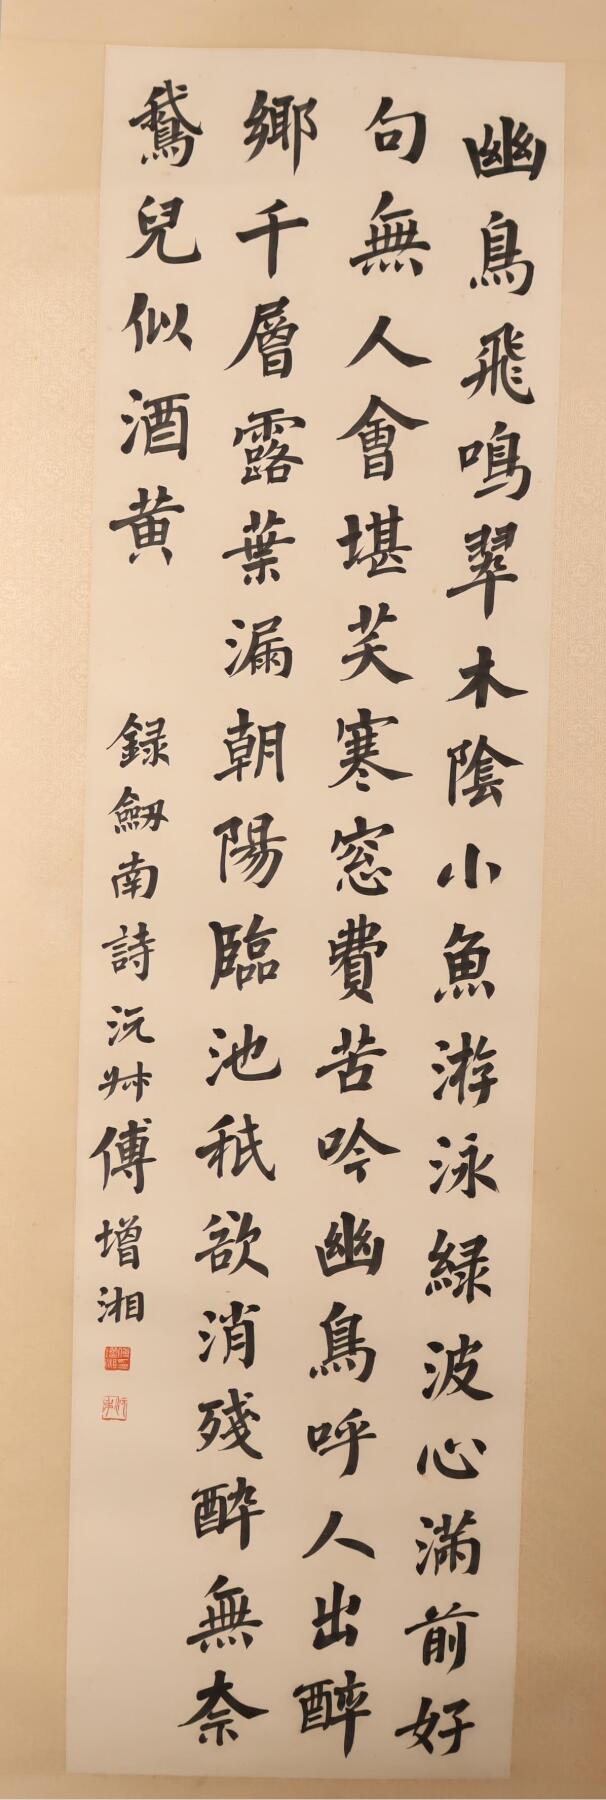 幽鳥飛鳴翠木陰小魚游泳緑波心滿前好
句無人會堪笑寒窓費苦吟幽鳥呼人出醉
鄉千層露葉漏朝陽臨池秖欲消殘醉無奈
鵞兒似酒黄
録劒南詩沅叔傅增湘